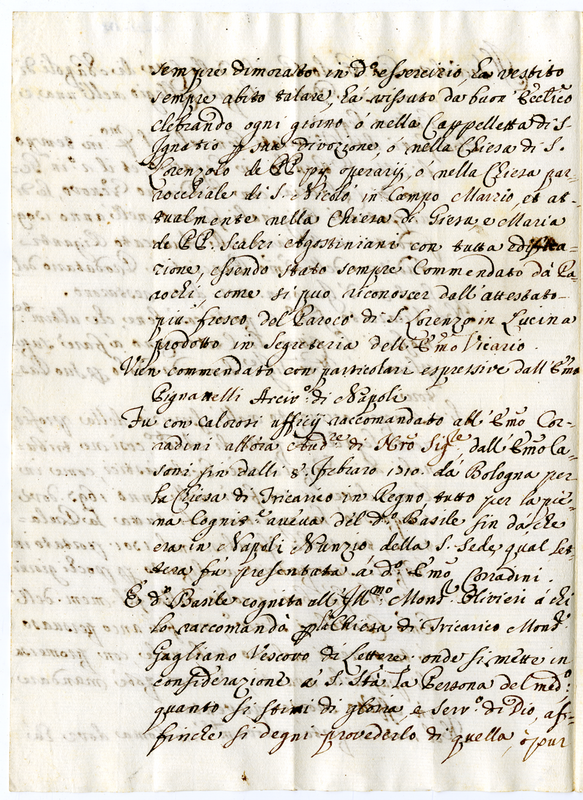 sempre dimorato in d.º essercizio, hà vestito
sempre abito talare, hà vissuto da buon Eccl.ico
celebrando ogni giorno ò nella Cappelletta di S.
Ignatio p sua divozione, ò nella Chiesa di S.
Lorenzolo de PP. pij operarij, o nella Chiesa par=
rocchiale di S. Nicolò in Campo Marzio, et at=
tualmente nella Chiesa di Giesù, e Maria
de PP. Scalzi Agostiniani con tutta edifica=
zione, essendo stato sempre commendato dà Pa=
rochi, come si può riconoscer dall'attestato
più fresco del Paroco di S. Lorenzo in Lucina
prodotto in Segreteria dell'Emo Vicario.
Vien commendato con particolari espressive dall'Emo
Pignatelli Arciv.º di Napoli.
Fù con calorosi ufficij raccomandato all'Emo Cor=
radini allora Aud.re di Nro Sig.re dall'Emo Ca=
soni fin dalli 8 Febraro 1710. dà Bologna per
la Chiesa di Tricarico in Regno, tutto per la pie=
na cognit.e aveva del d.º Basile fin da che
era in Napoli Nunzio della S. Sede, qual let=
tera fu presentata a d.º Emo Corradini.
E d.º Basile cognito all'Illmo Mons.r Olivieri à chi
lo raccomandò p la Chiesa di Tricarico Mons.r
Gagliano Vescovo di Lettere. onde si mette in
considerazione à S. Stà la Persona del med.º
quanto si stimi di gloria, e serv.º di Dio, af=
finche si degni provederlo di quella, ò pur